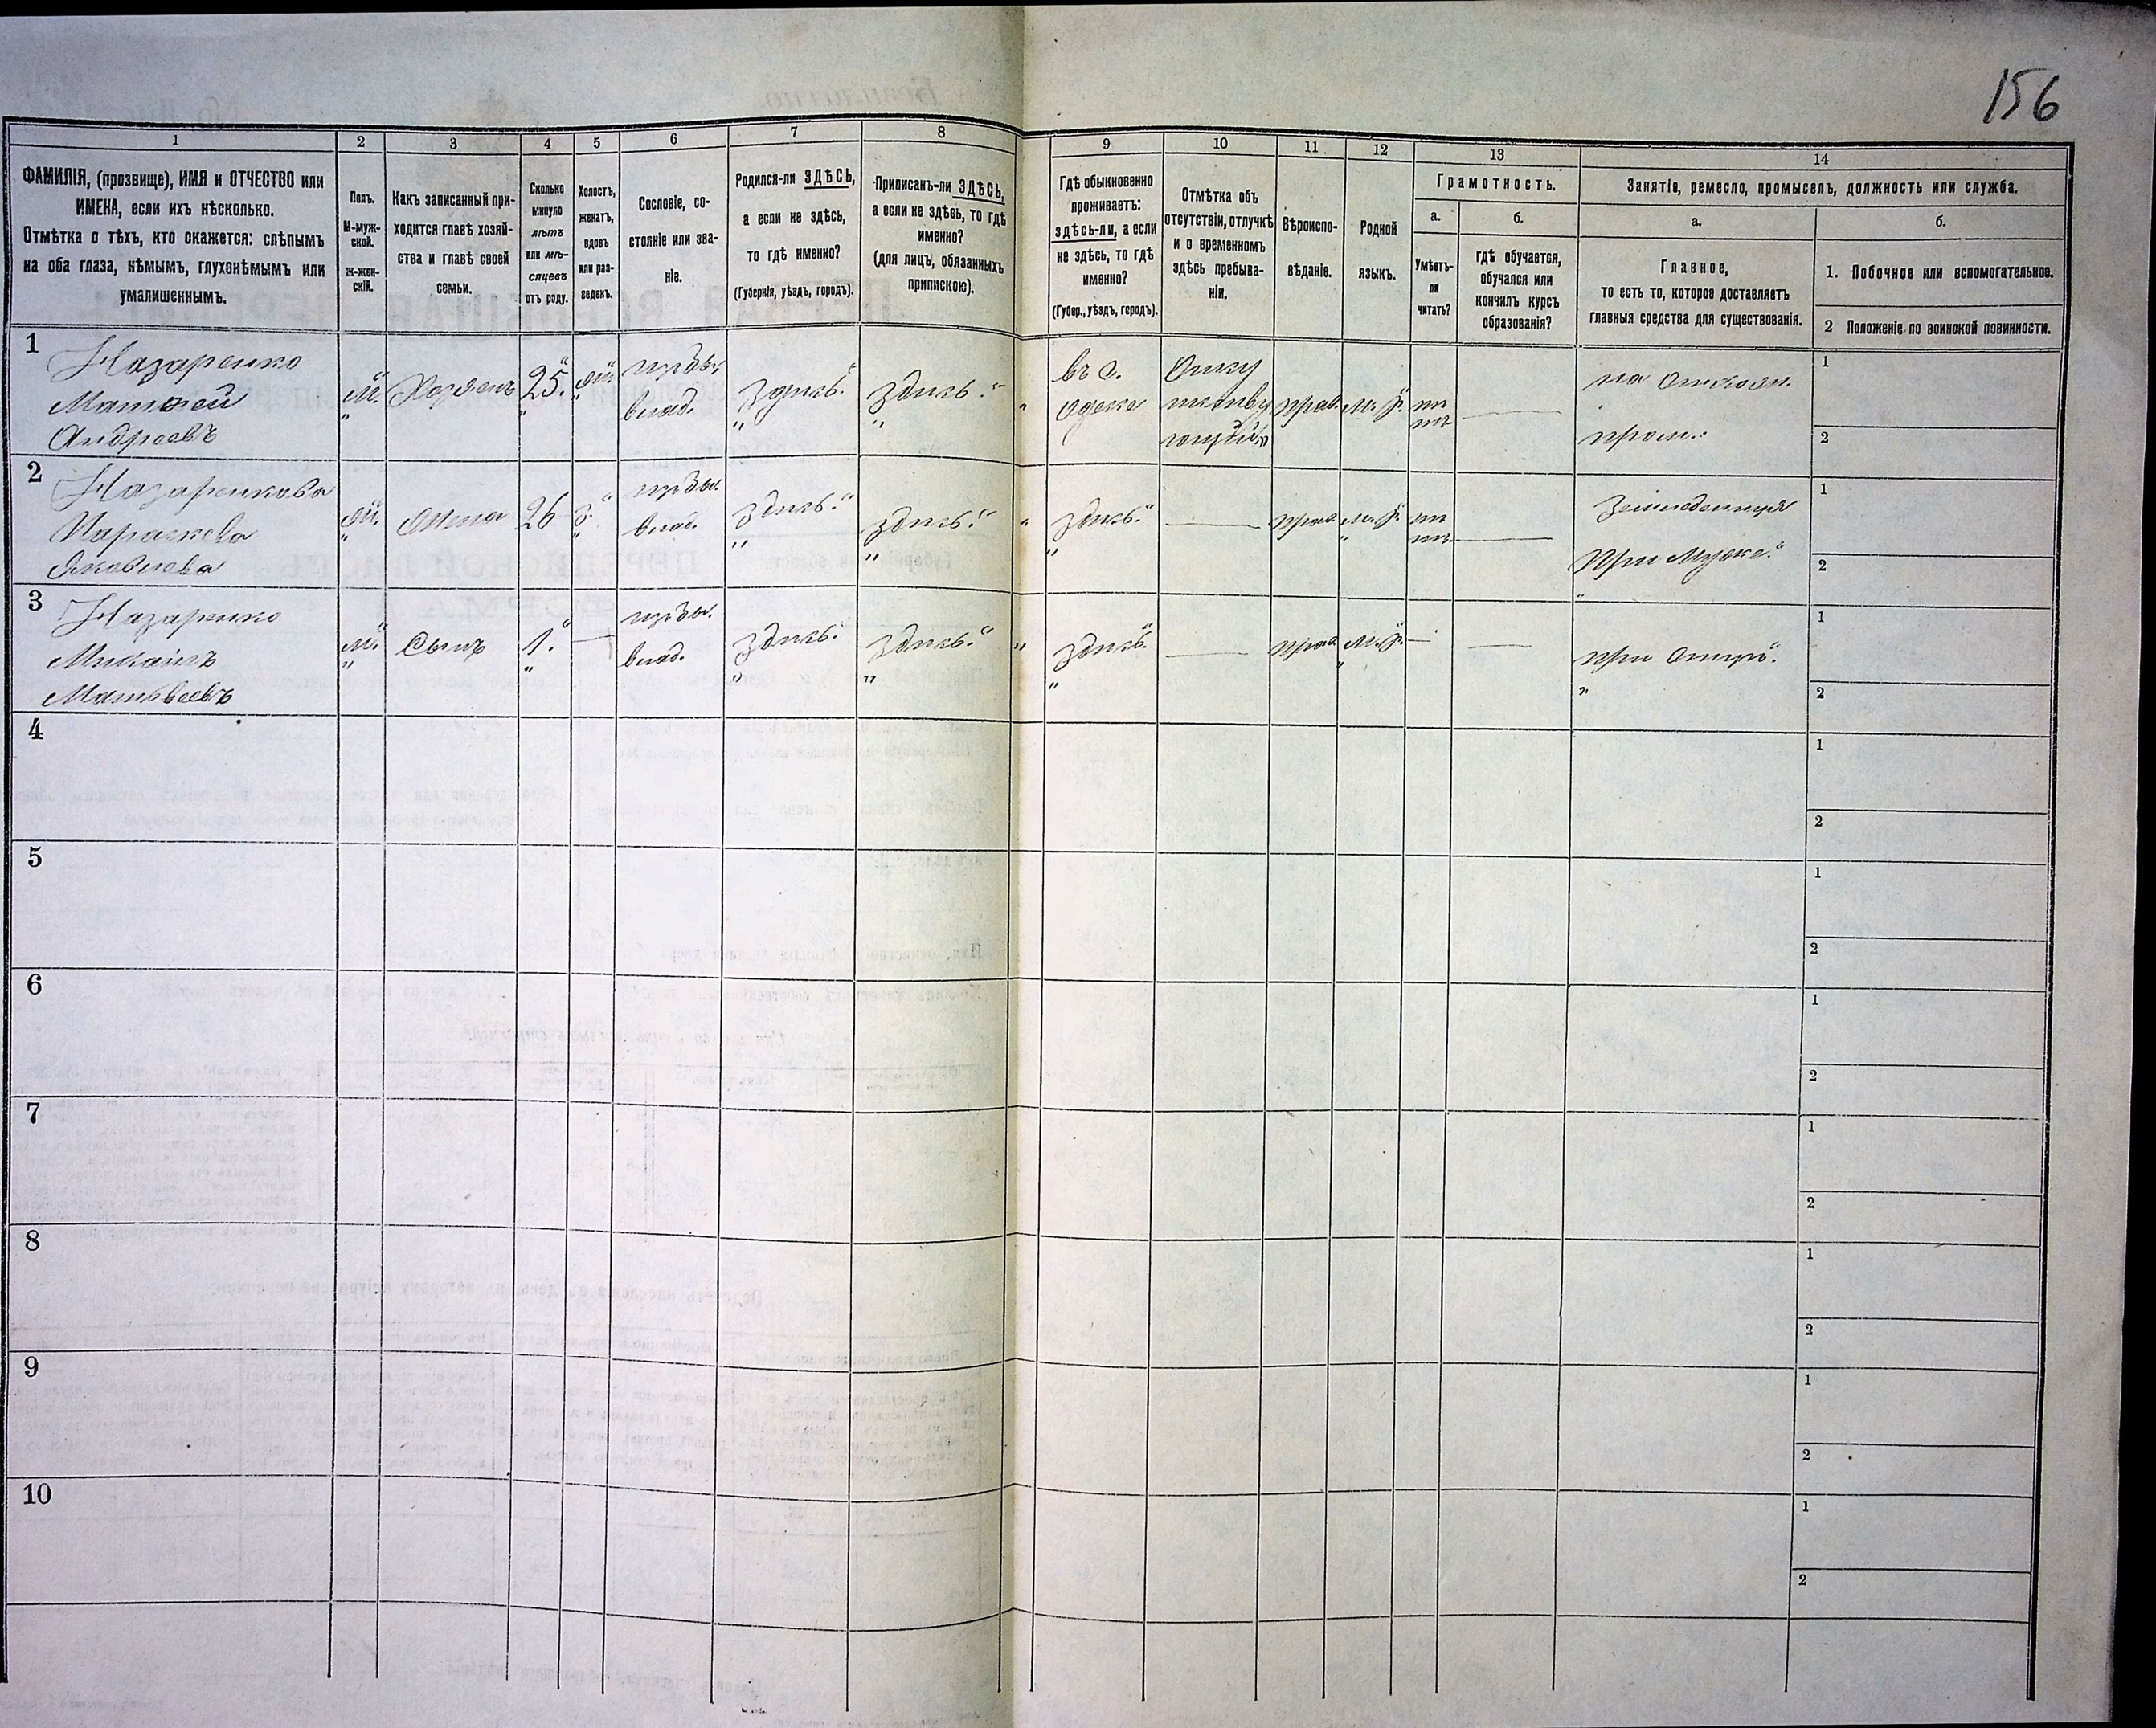 156
1
2
3
4
5
6
7
8
9
10
11
12
13
14
ФАМИЛІЯ, (прозвище), ИМЯ и ОТЧЕСТВО или
ИМЕНА, если ихъ нѣсколько.
Отмѣтка о тѣхъ, кто окажется: слѣпымъ
на оба глаза, нѣмымъ, глухонѣмымъ или
умалишеннымъ.
Полъ.
М-муж-
ской.
ж-жен-
скій.
Какъ записанный при-
ходится главѣ хозяй-
ства и главѣ своей
семьи.
Сколько
минуло
лѣтъ
или мѣ-
сяцевъ
отъ роду.
Холостъ,
женатъ,
вдовъ
или раз-
веденъ.
Сословіе, со-
стояніе или зва-
ніе.
Родился-ли ЗДѢСЬ,
а если не здѣсь,
то гдѣ именно?
(Губернія, уѣздъ, городъ).
Приписанъ-ли ЗДѢСЬ,
а если не здѣсь, то гдѣ
именно?
(для лицъ, обязанныхъ
припискою).
Гдѣ обыкновенно
проживаетъ:
здѣсь-ли, а если
не здѣсь, то гдѣ
именно?
(Губер., уѣздъ, городъ).
Отмѣтка объ
отсутствіи, отлучкѣ
и о временномъ
здѣсь пребыва-
ніи.
Вѣроиспо-
вѣданіе.
Родной
языкъ.
Грамотность.
а.
б.
Умѣетъ-
ли
читать?
гдѣ обучается,
обучался или
кончилъ курсъ
образованія?
Занятіе, ремесло, промыселъ, должность или служба.
а.
б.
Главное,
то есть то, которое доставляетъ
главныя средства для существованія.
1. Побочное или вспомогательное.
2 Положеніе по воинской повинности.
1
Назаренко
Матвей
Андреевъ
м.
Хозяинъ
25.
ж.
крѣст.
влад.
здѣсь.
здѣсь.
въ г.
Одеса
прав.
м. р.
нѣ
тъ
1
2
2
Назаренкова
Параскева
Яковлева
ж.
Жена
26
з.
влад.
здѣсь.
здѣсь.
здѣсь.
прав.
м. р.
нѣ
тъ
при Мужѣ.
1
2
3
Назаренко
Михаилъ
Матвѣевъ
м.
Сынъ
1.
влад.
здѣсь.
здѣсь.
здѣсь.
прав.
м. р.
при Отцѣ.
1
2
4
1
2
5
1
2
6
1
2
7
1
2
8
1
2
9
1
2
10
1
2